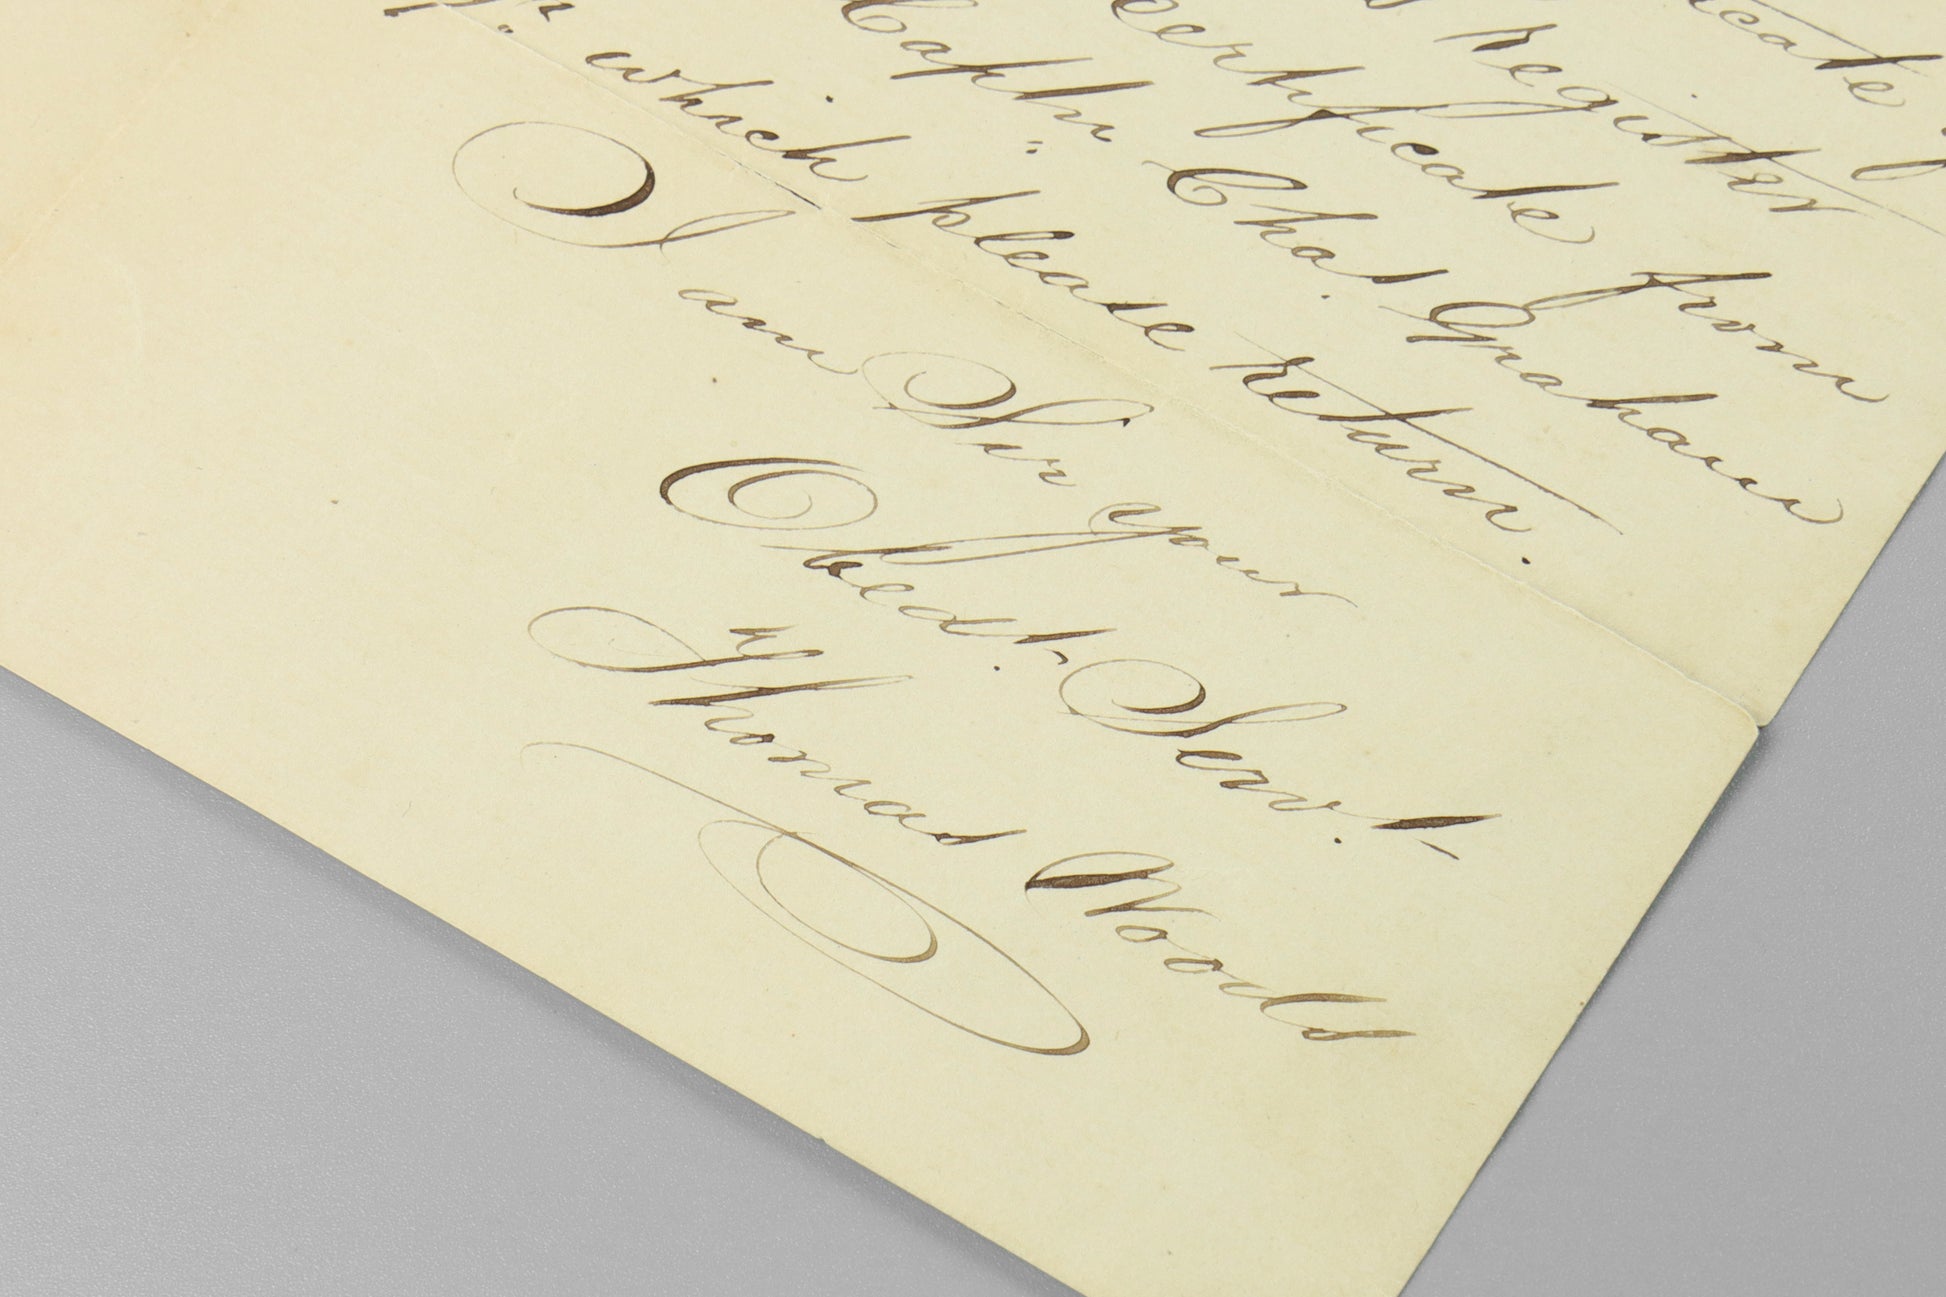 Register
Certificate from
Captn: Chas. Graham
which please return.
I am Sir your
Obedt. Servt.
Thomas Woods